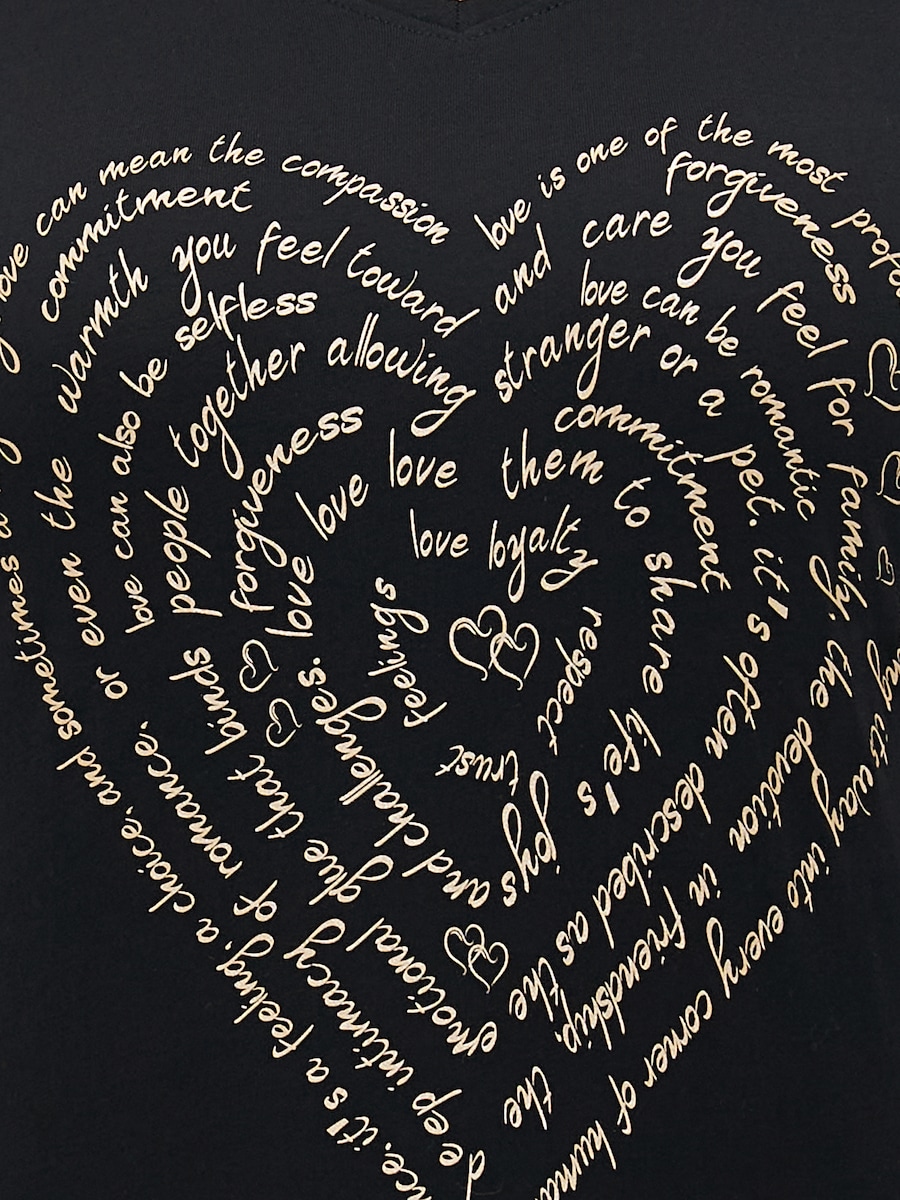 love is one of the most
ng its way into every corner of
it's a feeling, a choice, and sometimes a
love can mean the compassion
and care you feel for family. the devotion in friendship, the
deep intimacy of romance, or even the
warmth you feel toward
stranger or a pet. it's often described as the emotional glue that binds people together allowing
them to share life's joys and challenges.
love love love
love loyalty
respect
trust
feelings
forgiveness
commitment
love can be romantic
love can also be selfless
commitment
forgiveness